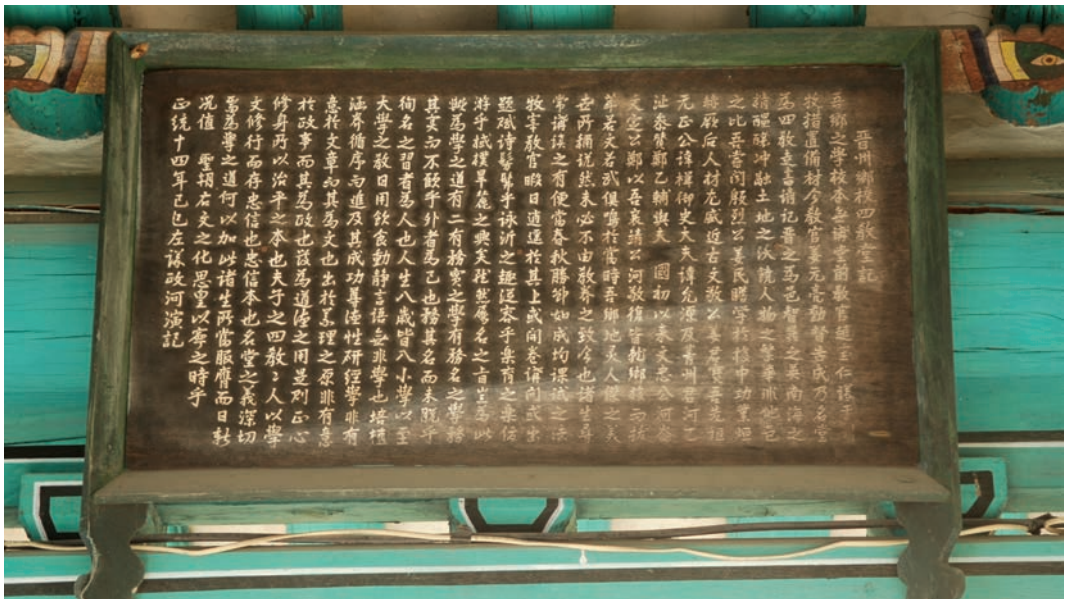 晋州鄕校四敎堂記
吾鄕之學校本無 堂前敎官趙玉仁謀于
牧措置備材今敎官姜元亮勤督告成乃名堂
爲四敎 言誦記晋之爲邑智異之 南海之
精醞釀冲融土地之沃饒人物之繁華非他邑
之比吾 間殷烈公姜民瞻學於校中功業 
將 后人材尤盛近古文敬公姜 吾先祖
元正公諱楫御史大夫諱允源及菁川君河乙
沚 鄭乙輔與夫 國初以來文忠公河崙
文定公鄭以吾襄靖公河敬復皆 鄕 而故
革若文若武俱鳴於當時吾鄕地灵人傑之美
世所稱說然未必不由敎養之致今也諸生尋
常誦讀之有便當春秋勝 如成均課試之法
牧宰敎官暇日逍遥於其上或開卷講問或出
題賦詩髣髴乎詠沂之趣從容乎樂育之 
游乎棫樸旱麓之興矣 然 名之 堂 此
 爲學之道有二有務實之學有務名之學務
其實而不 乎外者爲己也務其名而未 乎
徇名之習者爲人也人生八歲皆入小學以至
大學之敎日用飮食動靜言語無非學也培植
涵養循序而進及其成功尊德性硏經學非有
意於文章而其爲文也出於義理之原非有意
於政事而其爲政也 爲道德之用是則正心
修身所以治平之本也夫子之四敎〻人以學
文修行而存忠信也忠信本也名堂之義深切
 爲學之道何以加此諸生所當服膺而日新
况値 聖朝右文之化思 以 之時乎
正統十四年己巳左議政河演記